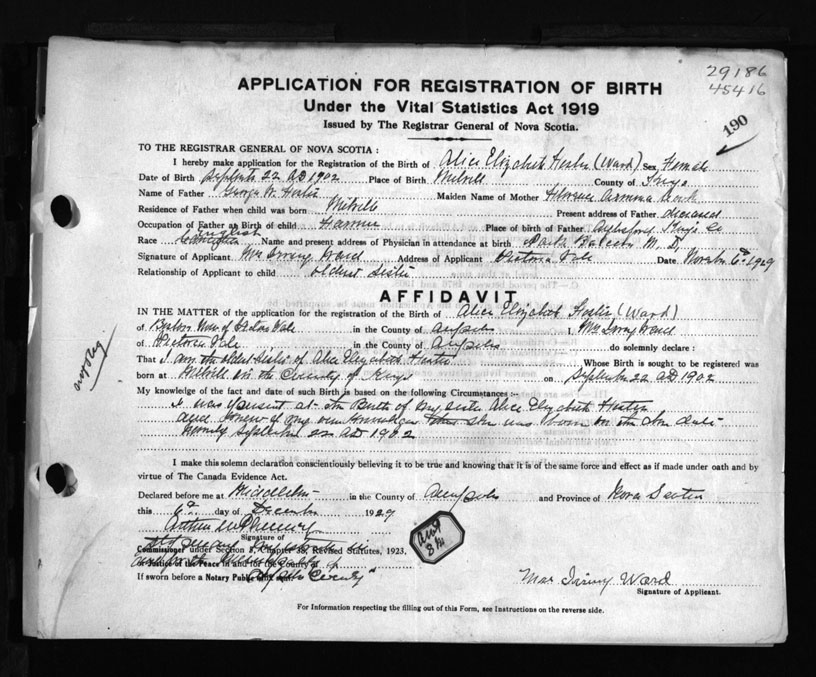 29186
45416
190
APPLICATION FOR REGISTRATION OF BIRTH
Under the Vital Statistics Act 1919
Issued by The Registrar General of Nova Scotia.
TO THE REGISTRAR GENERAL OF NOVA SCOTIA :
I hereby make application for the Registration of the Birth of Alice Elizabeth Foster (Ward) Sex Female
Date of Birth Septbr 22 AD 1902 Place of Birth Melvill County of Kings
Name of Father George W. Foster Maiden Name of Mother Florence
Residence of Father when child was born Melville Present address of Father deceased
Occupation of Father at Birth of child Farmer Place of birth of Father Aylesford Kings Co
English
Race Name and present address of Physician in attendance at birth M. D.
Signature of Applicant Mrs Irving Ward Address of Applicant Victoria Vale Date 6th 1929
Relationship of Applicant to child oldest sister
AFFIDAVIT
IN THE MATTER of the application for the registration of the Birth of Alice Elizabeth Foster (Ward)
of in the County of I, Mrs Irving Ward
of Victoria Vale in the County of do solemnly declare :
That I am the oldest sister of Alice Elizabeth Foster Whose Birth is sought to be registered was
born at Melvill in the County of Kings on September 22 AD 1902
My knowledge of the fact and date of such Birth is based on the following Circumstances :-
I was present at the Birth of my sister Alice Elizabeth Foster
and know of my own knowledge that she was born on the date
namely September 22 AD 1902
I make this solemn declaration conscientiously believing it to be true and knowing that it is of the same force and effect as if made under oath and by
virtue of The Canada Evidence Act.
Declared before me at Middleton in the County of and Province of Nova Scotia
this 6th day of December 1929
Signature of
Commissioner under Section 8, Chapter 38, Revised Statutes, 1923.
or Justice of the Peace in and for the County of
If sworn before a Notary Public County
Mrs Irving Ward
Signature of Applicant.
For Information respecting the filling out of this Form, see Instructions on the reverse side.